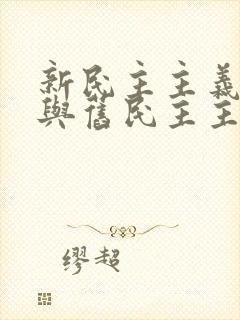 新民主主義
與舊民主主
缪超